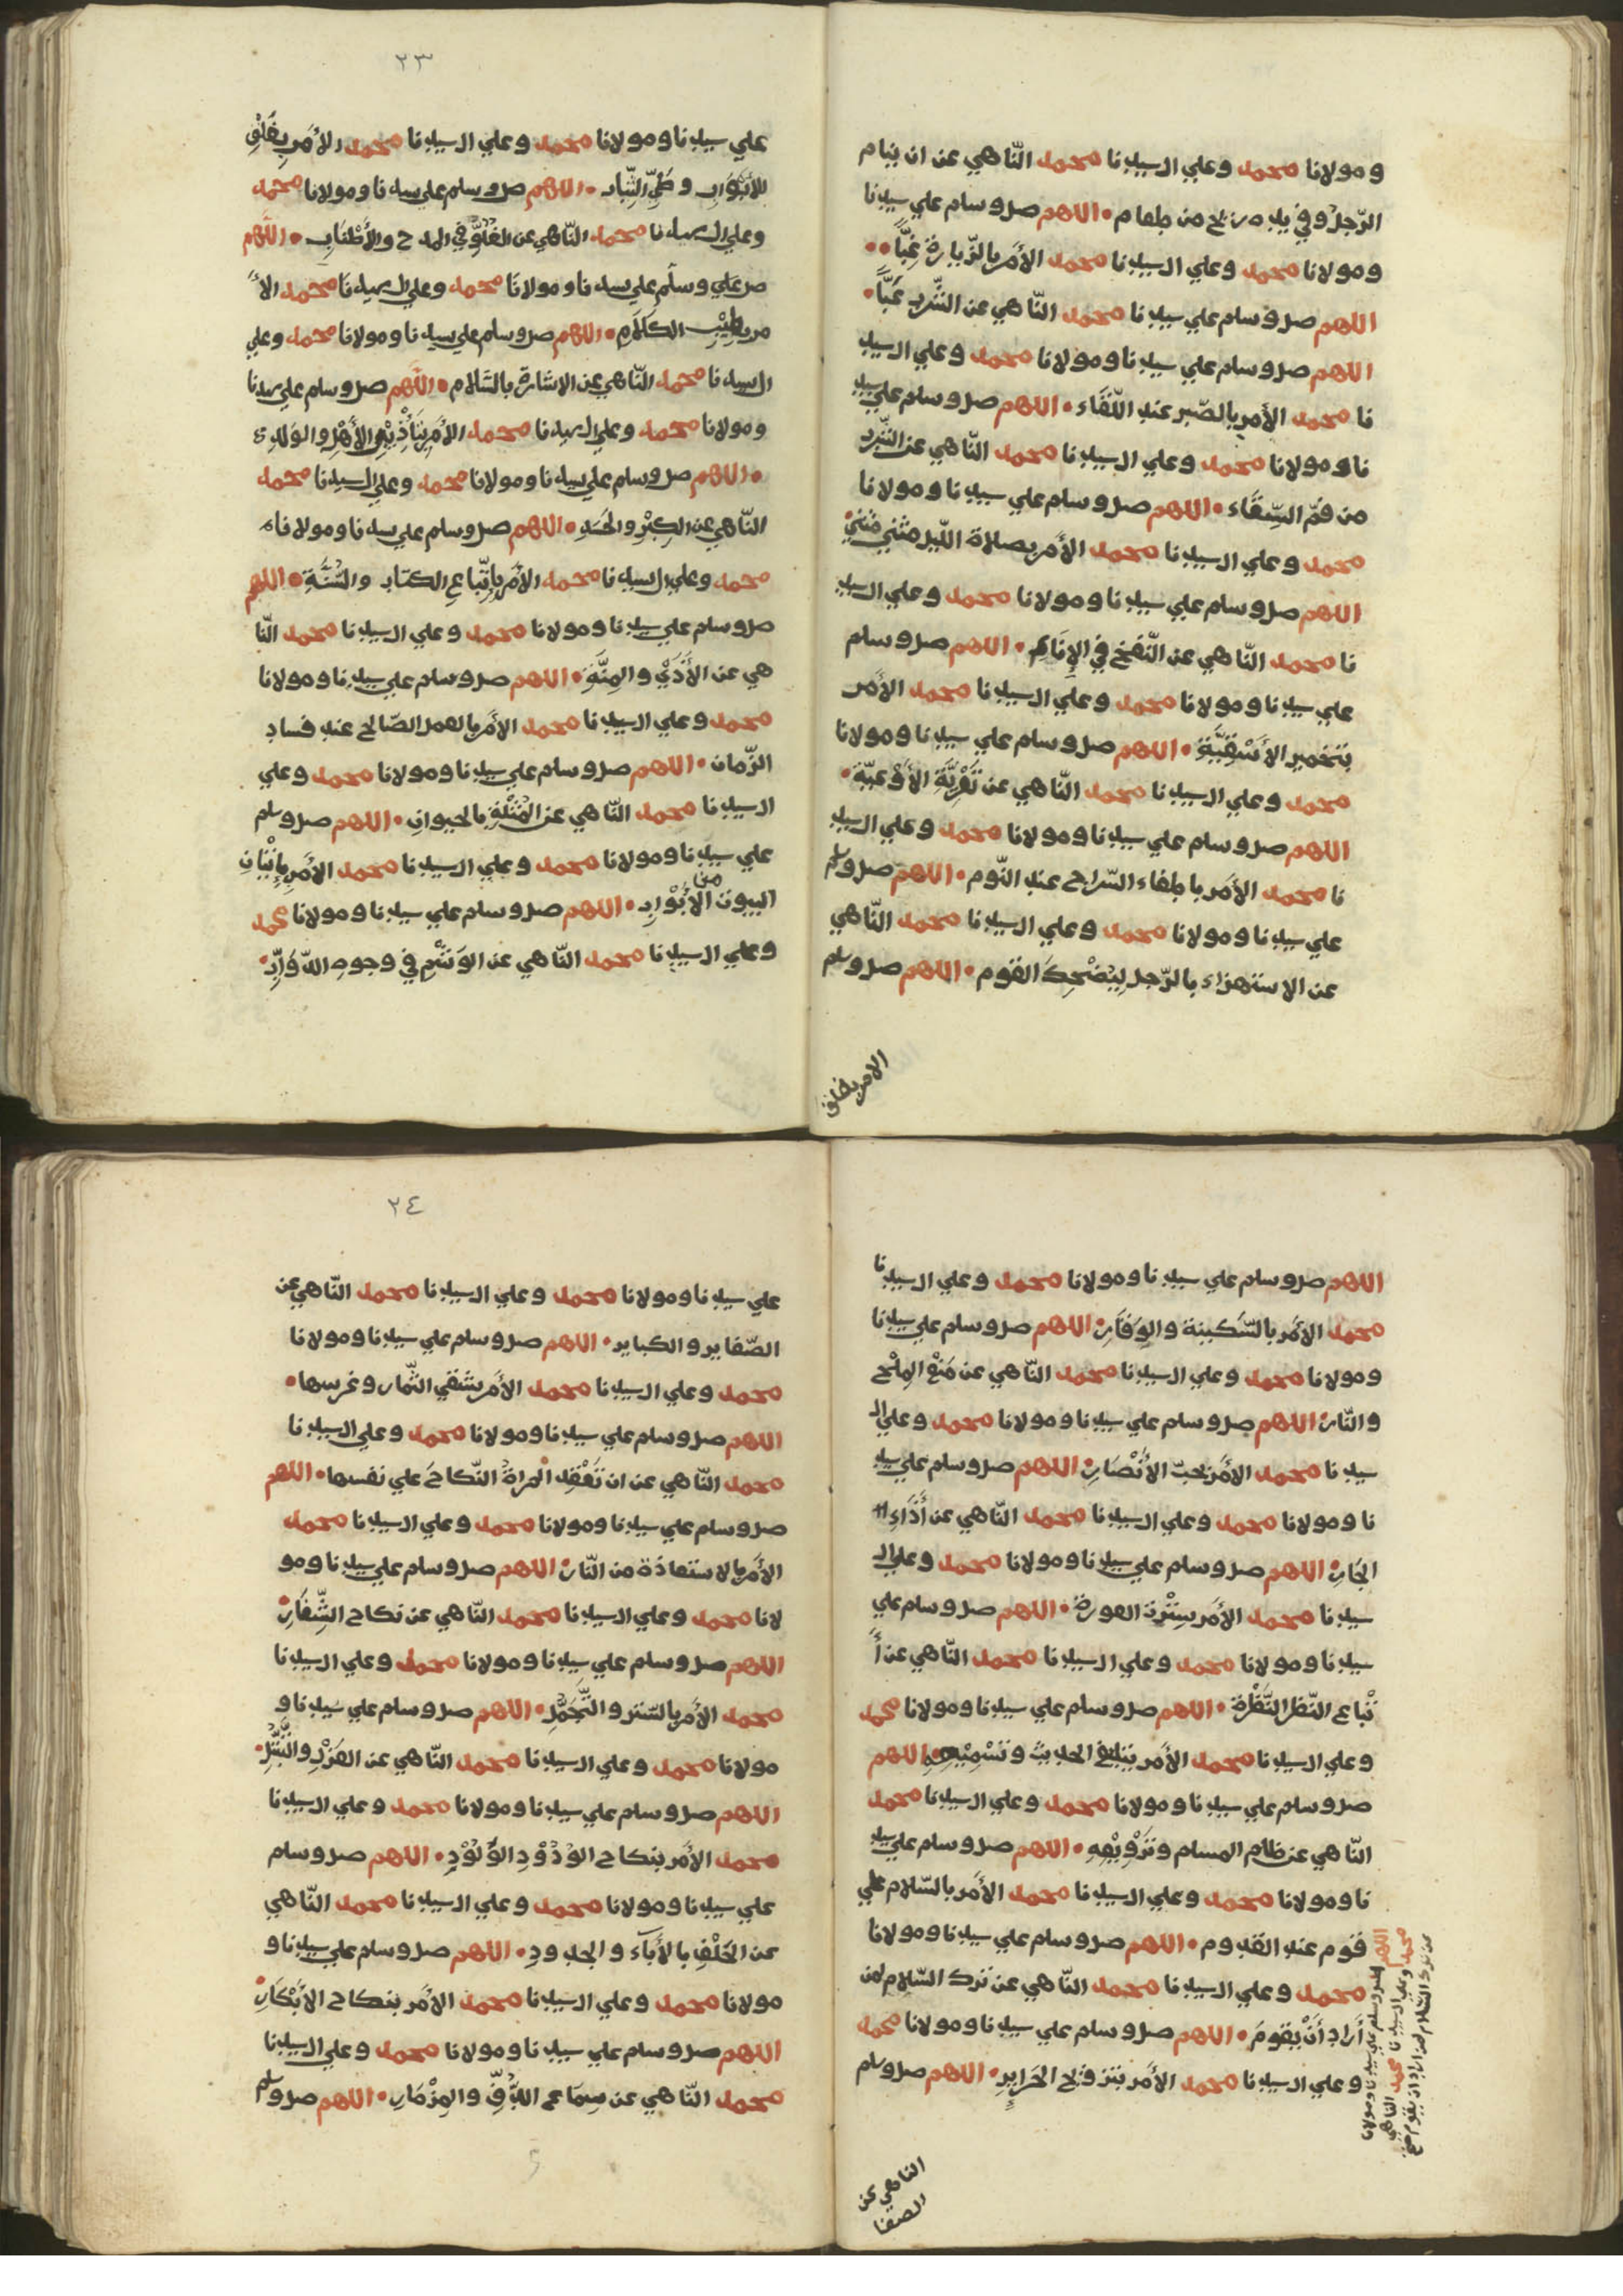 ومولانا محمد وعلي ال سيدنا محمد النّاهي عن ان ينام
الرّجل وفي يده ريح من طعام • اللهم صل وسلم علي سيدنا
ومولانا محمد وعلي ال سيدنا محمد الأمر بالزّيارة غِبًّا ••
اللهم صل وسلم علي سيدنا محمد النّاهي عن الشّرب عَبًّا •
اللهم صل وسلم علي سيدنا ومولانا محمد وعلي ال سيد
نا محمد الأمر بالصّبر عند اللّقَاء • اللهم صل وسلم علي سيد
نا ومولانا محمد وعلي ال سيدنا محمد النّاهي عن الشّرب
من فمّ السِّقَاء • اللهم صل وسلم علي سيدنا ومولانا
محمد وعلي ال سيدنا محمد الأمر بصلاة اللّيل مثني مثني •
اللهم صل وسلم علي سيدنا ومولانا محمد وعلي ال سيد
نا محمد النّاهي عن النّفخ في الإِنَاءِ • اللهم صل وسلم
علي سيدنا ومولانا محمد وعلي ال سيدنا محمد الأمر
بتخمير الأَسْقِيَّةِ • اللهم صل وسلم علي سيدنا ومولانا
محمد وعلي ال سيدنا محمد النّاهي عن تَعْرِيَّةِ الأَوْعِيّة •
اللهم صل وسلم علي سيدنا ومولانا محمد وعلي ال سيد
نا محمد الأمر باطفاء السّراج عند النّوم • اللهم صل وسلم
علي سيدنا ومولانا محمد وعلي ال سيدنا محمد النّاهي
عن الاستهزاء بالرّجل لِيُضْحِكَ القوم • اللهم صل وسلم
الامر بغلق
٢٣
علي سيدنا ومولانا محمد وعلي ال سيدنا محمد الأمر بِغَلْقِ
الأَبْوَابِ وطَيِّ الثِّيَاب • اللهم صل وسلم علي سيدنا ومولانا محمد
وعلي ال سيدنا محمد النّاهي عن الغُلُوِّ في المدح والأَطْنَابِ • اللهم
صل علي وسلم علي سيدنا ومولانا محمد وعلي ال سيدنا محمد الأ
مر بطِيْبِ الكَلَامِ • اللهم صل وسلم علي سيدنا ومولانا محمد وعلي
ال سيدنا محمد النّاهي عن الاشارة بالسّلام • اللهم صل وسلم علي سيدنا
ومولانا محمد وعلي ال سيدنا محمد الأمر بِتَأْدِيْبِ الأَهْلِ والوَلَدِ
• اللهم صل وسلم علي سيدنا ومولانا محمد وعلي ال سيدنا محمد
النّاهي عن الكِبْرِ والحَسَدِ • اللهم صل وسلم علي سيدنا ومولانا
محمد وعلي ال سيدنا محمد الأمر بِاتِّبَاعِ الكتاب والسُّنَّةِ • اللهم
صل وسلم علي سيدنا ومولانا محمد وعلي ال سيدنا محمد النّا
هي عن الأَذَيْ والمِنَّةِ • اللهم صل وسلم علي سيدنا ومولانا
محمد وعلي ال سيدنا محمد الأمر بالعمل الصّالح عند فساد
الزّمان • اللهم صل وسلم علي سيدنا ومولانا محمد وعلي
ال سيدنا محمد النّاهي عن المُثْلَةِ بالحيوان • اللهم صل وسلم
علي سيدنا ومولانا محمد وعلي ال سيدنا محمد الأمر بِاِتْيَانِ
البيوت من الأَبْوَابِ • اللهم صل وسلم علي سيدنا ومولانا محمد
وعلي ال سيدنا محمد النّاهي عن الوَسْمِ في وجوه الدّوَابِّ •
اللهم صل وسلم علي سيدنا ومولانا محمد وعلي ال سيدنا
محمد الأمر بالسّكينة والوَقَارِ • اللهم صل وسلم علي سيدنا
ومولانا محمد وعلي ال سيدنا محمد النّاهي عن مَنْعِ المِلْحِ
والنّار • اللهم صل وسلم علي سيدنا ومولانا محمد وعلي ال
سيدنا محمد الأمر بحبّ الأَنْصَارِ • اللهم صل وسلم علي سيد
نا ومولانا محمد وعلي ال سيدنا محمد النّاهي عن أَذَاءِ
الجَارِ • اللهم صل وسلم علي سيدنا ومولانا محمد وعلي ال
سيدنا محمد الأمر بِسِتْرَة العورة • اللهم صل وسلم علي
سيدنا ومولانا محمد وعلي ال سيدنا محمد النّاهي عن أَ
تْبَاع النّظر النَّظْرة • اللهم صل وسلم علي سيدنا ومولانا محمد
وعلي ال سيدنا محمد الأمر بتبليغ الحديث وتَسْمِيْعِهِ • اللهم
صل وسلم علي سيدنا ومولانا محمد وعلي ال سيدنا محمد
النّاهي عن ظلم المسلم وتَرْوِيْعِهِ • اللهم صل وسلم علي سيد
نا ومولانا محمد وعلي ال سيدنا محمد الأمر بالسّلام علي
قوم عند القدوم • اللهم صل وسلم علي سيدنا ومولانا
محمد وعلي ال سيدنا محمد النّاهي عن ترك السّلام لمن
أراد أَنْ يقومَ • اللهم صل وسلم علي سيدنا ومولانا محمد
وعلي ال سيدنا محمد الأمر بتزويج الحَرَايِرِ • اللهم صل وسلم
اللهم صل وسلم علي سيدنا ومولانا
محمد وعلي ال سيدنا محمد الناهي
عن ترك السّلام لمن اراد ان يقوم صح
الناهي عن
الصغا
٢٤
علي سيدنا ومولانا محمد وعلي ال سيدنا محمد النّاهي عن
الصّغاير والكباير • اللهم صل وسلم علي سيدنا ومولانا
محمد وعلي ال سيدنا محمد الأمر بسَقْي الثّمار وغرسها •
اللهم صل وسلم علي سيدنا ومولانا محمد وعلي ال سيدنا
محمد النّاهي عن ان تَعْقِد المراةُ النّكاحَ علي نفسها • اللهم
صل وسلم علي سيدنا ومولانا محمد وعلي ال سيدنا محمد
الأمر بالاستعاذة من النّار • اللهم صل وسلم علي سيدنا ومو
لانا محمد وعلي ال سيدنا محمد النّاهي عن نكاح الشِّغَارِ •
اللهم صل وسلم علي سيدنا ومولانا محمد وعلي ال سيدنا
محمد الأمر بالسّتر والتَّجَمُّلِ • اللهم صل وسلم علي سيدنا و
مولانا محمد وعلي ال سيدنا محمد النّاهي عن العَزْلِ والتَّبَتُّلِ •
اللهم صل وسلم علي سيدنا ومولانا محمد وعلي ال سيدنا
محمد الأمر بنكاح الوَدُوْدِ الوَلُوْدِ • اللهم صل وسلم
علي سيدنا ومولانا محمد وعلي ال سيدنا محمد النّاهي
عن الحَلْفِ بالأَبَآء والجدودِ • اللهم صل وسلم علي سيدنا و
مولانا محمد وعلي ال سيدنا محمد الأمر بنكاح الأَبْكَارِ •
اللهم صل وسلم علي سيدنا ومولانا محمد وعلي ال سيدنا
محمد النّاهي عن سِمَاع الدُّفِّ والمِزْمَارِ • اللهم صل وسلم